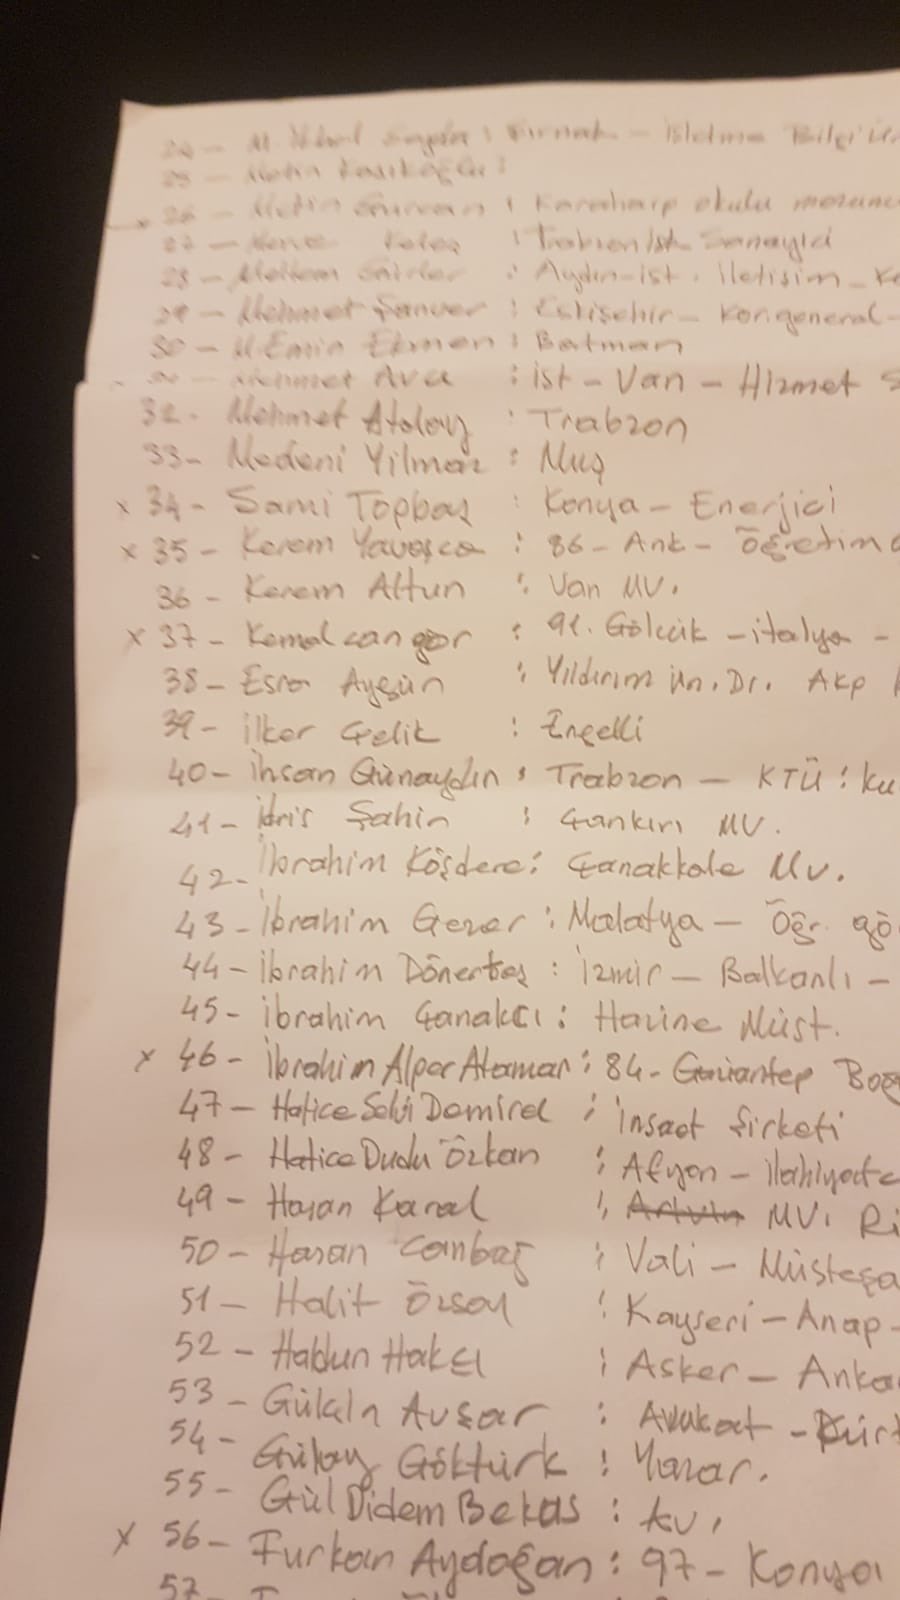 24 - M. : Şırnak - İşletme Bilgi
25 - Metin Kaşıkoğlu :
x 26 - Metin Gürcan : Karaharp okulu mezunu
27 - : Trabzon İst. Sanayici
28 - Meltem : Aydın - ist. iletişim -
29 - Mehmet Şanver : Eskişehir - Korgeneral -
30 - M. Emin Ekmen : Batman
Mehmet Avcı : ist - Van - Hizmet
32 - Mehmet Atalay : Trabzon
33 - Medeni Yılmaz : Muş
x 34 - Sami Topbaş : Konya - Enerjici
x 35 - Kerem Yavaşça : 86 - Ank - Öğretim
36 - Kerem Altun : Van MV.
x 37 - Kemal can gör : 91. Gölcük - italya -
38 - Esra Aygün : Yıldırım Ün. Dr. AKP
39 - ilker Çelik : Engelli
40 - ihsan Günaydın : Trabzon - KTÜ :
41 - idris Şahin : Çankırı MV.
42 - İbrahim Köşdere : Çanakkale MV.
43 - İbrahim Gezer : Malatya - Öğr. gö
44 - İbrahim Dönertaş : İzmir - Balkanlı -
45 - ibrahim Çanakcı : Hazine Müst.
x 46 - İbrahim Alper Ataman : 84 - Gaziantep Boğ
47 - Hatice Selvi Demirel : İnşaat Şirketi
48 - Hatice Dudu Özkan : Afyon - ilahiyatç
49 - Hasan Karal : Artvin MV. Ri
50 - Hasan Canbağ : Vali - Müsteşa
51 - Halit Özsoy : Kayseri - Anap -
52 - Haldun Hakçı : Asker - Anka
53 - Gülçin Avşar : Avukat - Kürt
54 - Gülay Göktürk : Yazar.
55 - Gül Didem Bekas : Av.
x 56 - Furkan Aydoğan : 97 - Konya
57 -